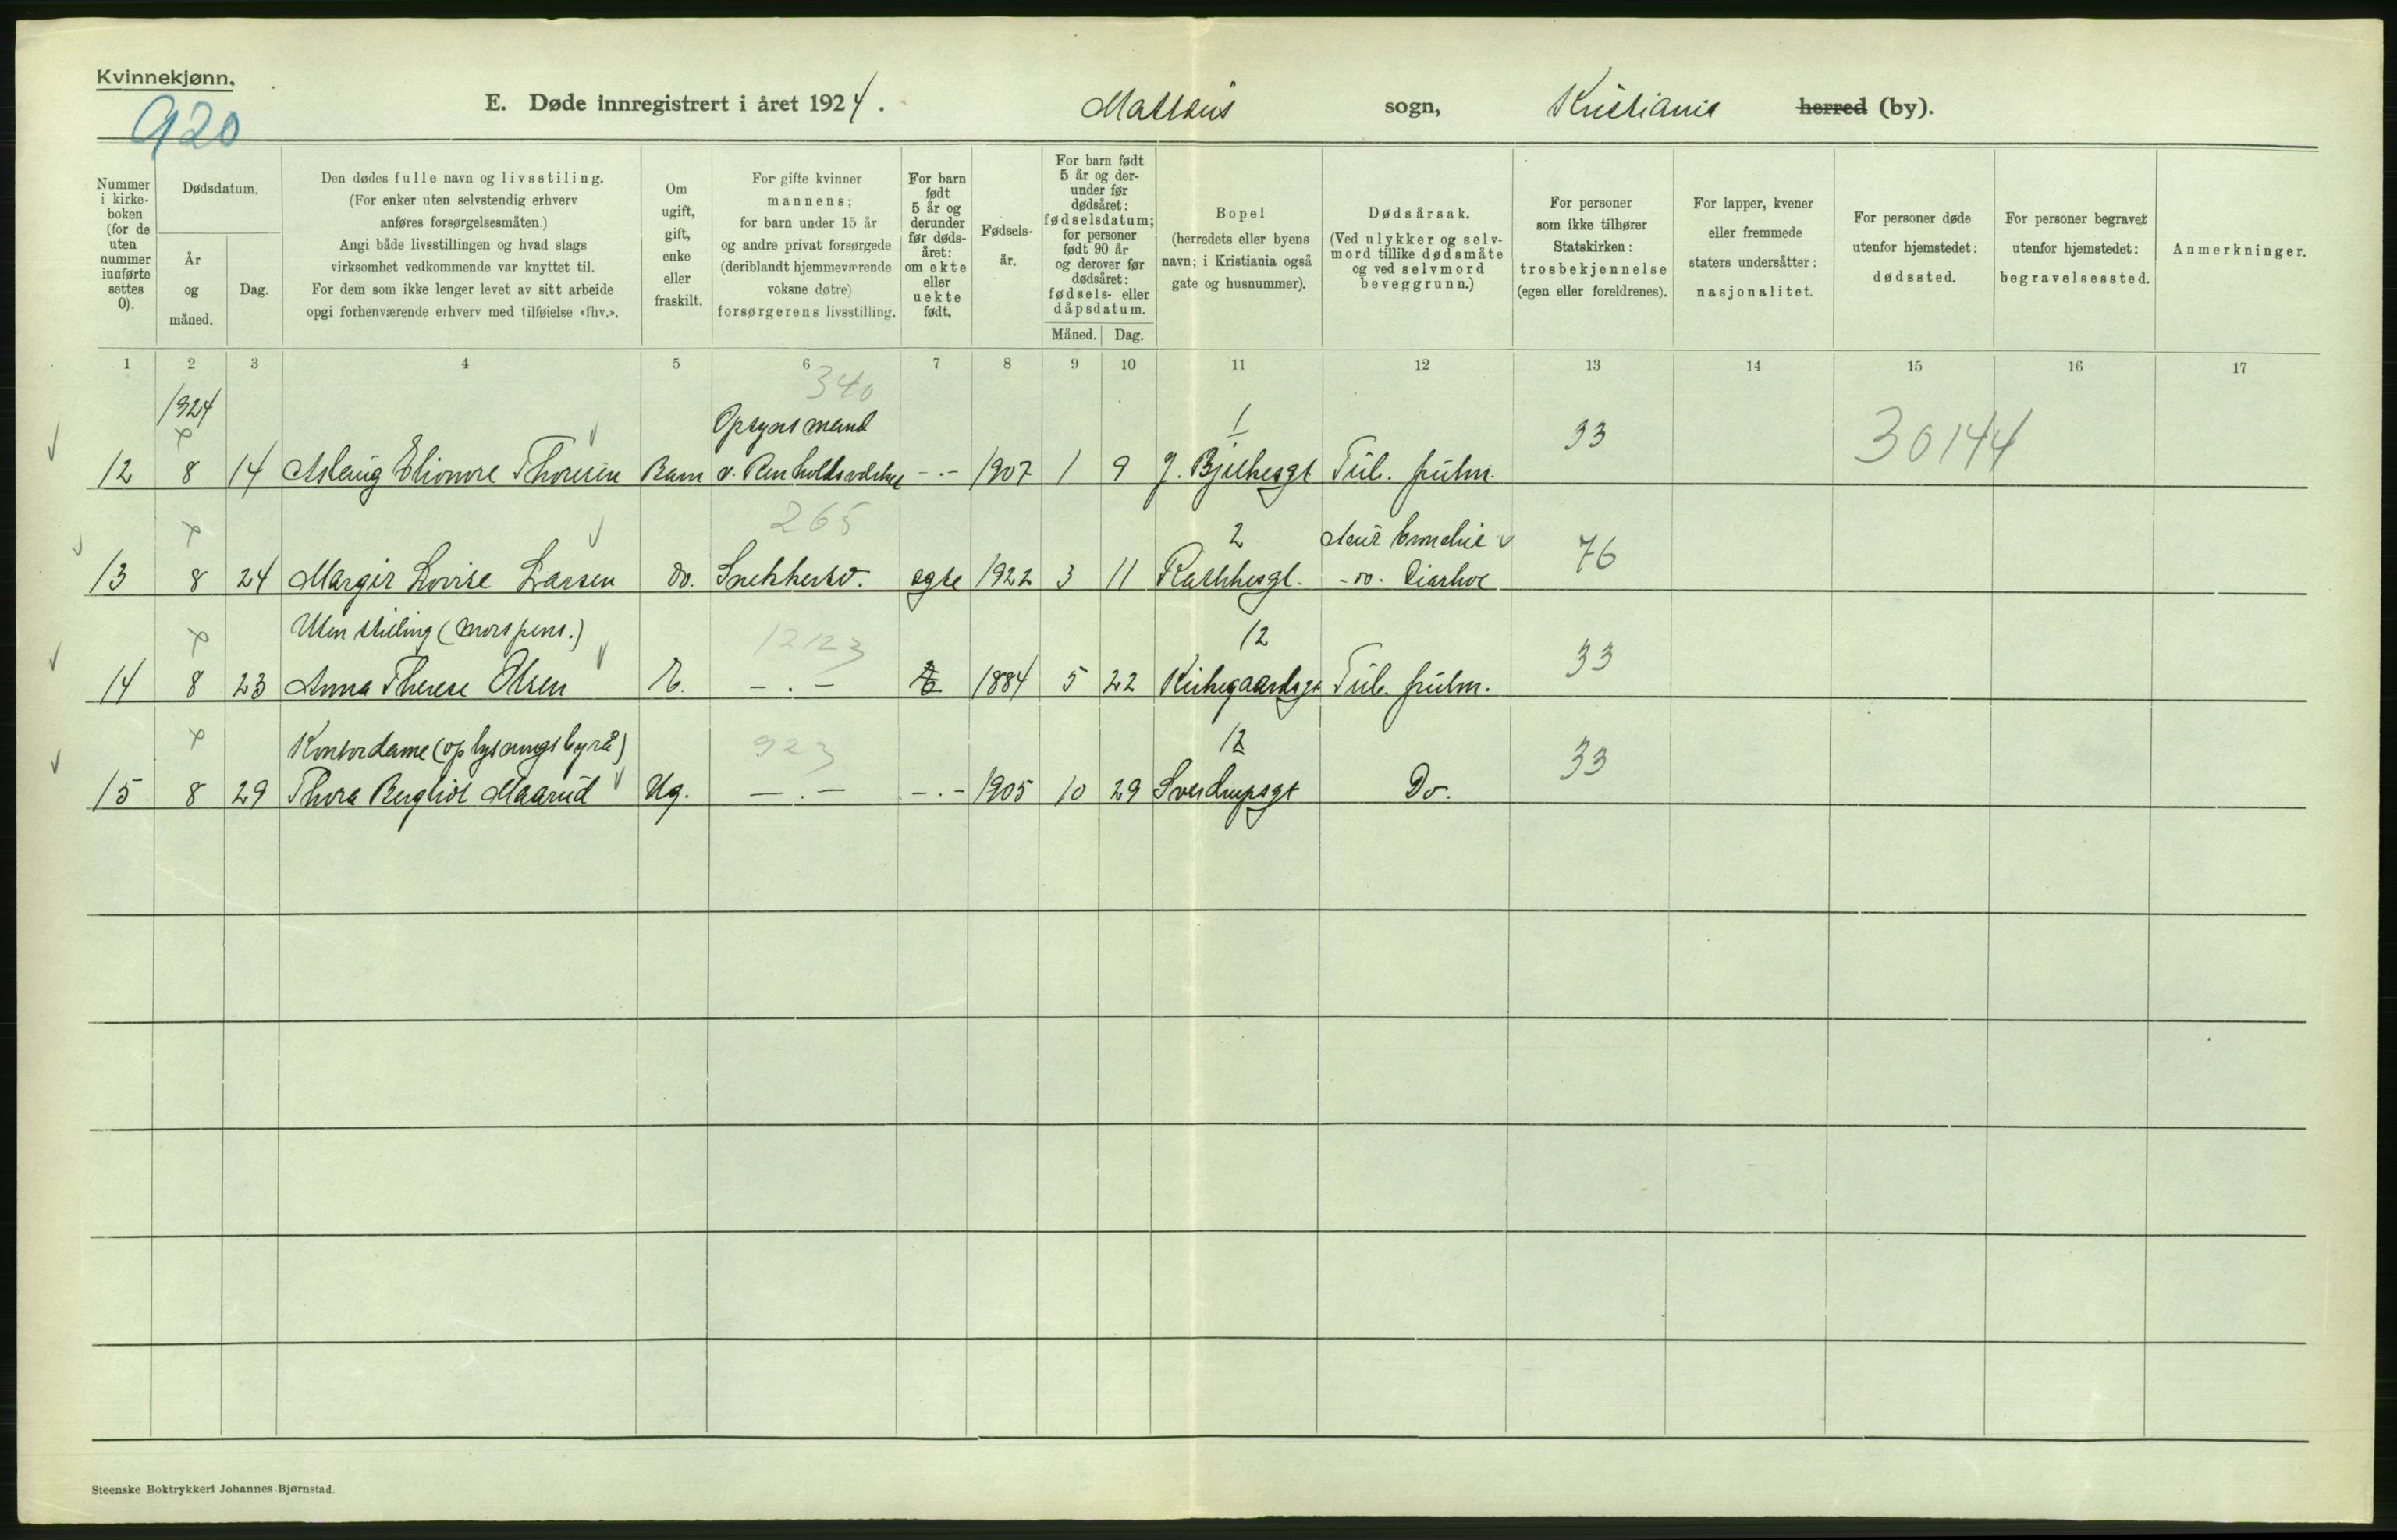 Kvinnekjønn.
920
E. Døde innregistrert i året 1924. Matteus sogn, Kristiania herred (by).
Nummer i kirke- boken (for de uten nummer innførte settes 0).
Dødsdatum.
År og måned.
Dag.
Den dødes fulle navn og livsstiling.
(For enker uten selvstendig erhverv
anføres forsørgelsesmåten.)
Angi både livsstillingen og hvad slags
virksomhet vedkommende var knyttet til.
For dem som ikke lenger levet av sitt arbeide
opgi forhenværende erhverv med tilføielse «fhv.».
Om ugift, gift, enke eller fraskilt.
For gifte kvinner
mannens;
for barn under 15 år
og andre privat forsørgede
(deriblandt hjemmeværende
voksne døtre)
forsørgerens livsstilling.
For barn født 5 år og derunder før døds- året: om ekte eller uekte født.
Fødsels- år.
For barn født
5 år og der-
under før
dødsåret:
fødselsdatum;
for personer
født 90 år
og derover før
dødsåret:
fødsels- eller
dåpsdatum.
Måned. Dag.
Bopel
(herredets eller byens
navn; i Kristiania også
gate og husnummer).
Dødsårsak.
(Ved ulykker og selv-
mord tillike dødsmåte
og ved selvmord
beveggrunn.)
For personer
som ikke tilhører
Statskirken:
trosbekjennelse
(egen eller foreldrenes).
For lapper, kvener
eller fremmede
staters undersåtter:
nasjonalitet.
For personer døde
utenfor hjemstedet:
dødssted.
For personer begravet
utenfor hjemstedet:
begravelsessted.
Anmerkninger.
1 2 3 4 5 6 7 8 9 10 11 12 13 14 15 16 17
340
1924 Opsynsmand 1 33 30144
12 8 14 Aslaug Elionore Thoresen Barn v. Renholdsverket -.- 1907 1 9 J. Bjelkesgt Tub. pulm.
265
2 Acut bronchit 76
13 8 24 Margit Lovise Larsen do. Snekkersv. egte 1922 3 11 Rathkesgt. -do. Diarhoe
Uten stilling (mors pens.) 12123 12 33
14 8 23 Anna Therese Olsen E. -.- 1884 5 22 Kirkegaardsgt Tub. pulm.
Kontordame (oplysningsbyrå) 923 12 33
15 8 29 Thora Bergliot Maarud Ug. -.- -.- 1905 10 29 Sverdrupsgt Do.
Steenske Boktrykkeri Johannes Bjørnstad.